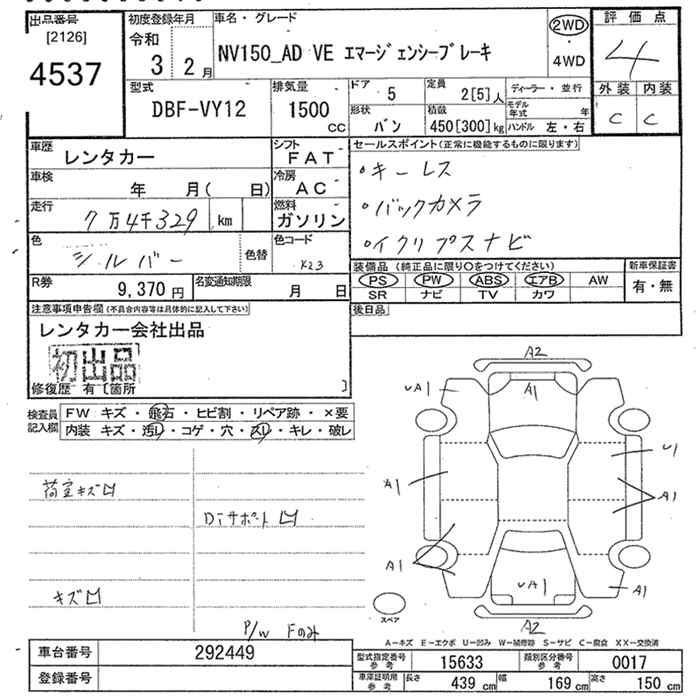 出品番号 初度登録年月 車名・グレード 評価点
[2126]
4537
令和
3 2月
NV150_AD VE エマージェンシーブレーキ
2WD
・
4WD
4
型式 排気量 ドア 5 定員 2[5]人 ディーラー・並行 外装 内装
DBF-VY12 1500 CC
形状 バン 積載 450[300]kg モデル年式 年
ハンドル 左・右
C C
車歴 レンタカー シフト FAT セールスポイント(正常に機能するものに限ります)
車検 年 月( 日) 冷房 AC
・キーレス
走行 7万4千329 km 燃料 ガソリン
・バックカメラ
色 シルバー 色替 色コード K23
・イクリプスナビ
R券 9,370円 名変通知期限 月 日
装備品(純正品に限り○をつけてください) 新車保証書
PS PW ABS エアB AW 有・無
SR ナビ TV カワ
注意事項申告欄(不具合内容等は具体的に記入して下さい) 後日品
レンタカー会社出品
初出品
修復歴 有〔箇所 〕
検査員記入欄
FW キズ・飛石・ヒビ割・リペア跡・×要
内装 キズ・汚レ・コゲ・穴・スレ・キレ・破レ
A2
UA1 A1
U1
A1 A1
荷室キズ凹
Diサポート凹
A1
UA1 A1
キズ凹
スペア
A2
P/W Fのみ
A-キズ E-エクボ U-凹み W-補修跡 S-サビ C-腐食 XX-交換済
車台番号 292449
型式指定番号 参考 15633 類別区分番号 参考 0017
登録番号
車庫証明用 参考 長さ 439 cm 幅 169 cm 高さ 150 cm